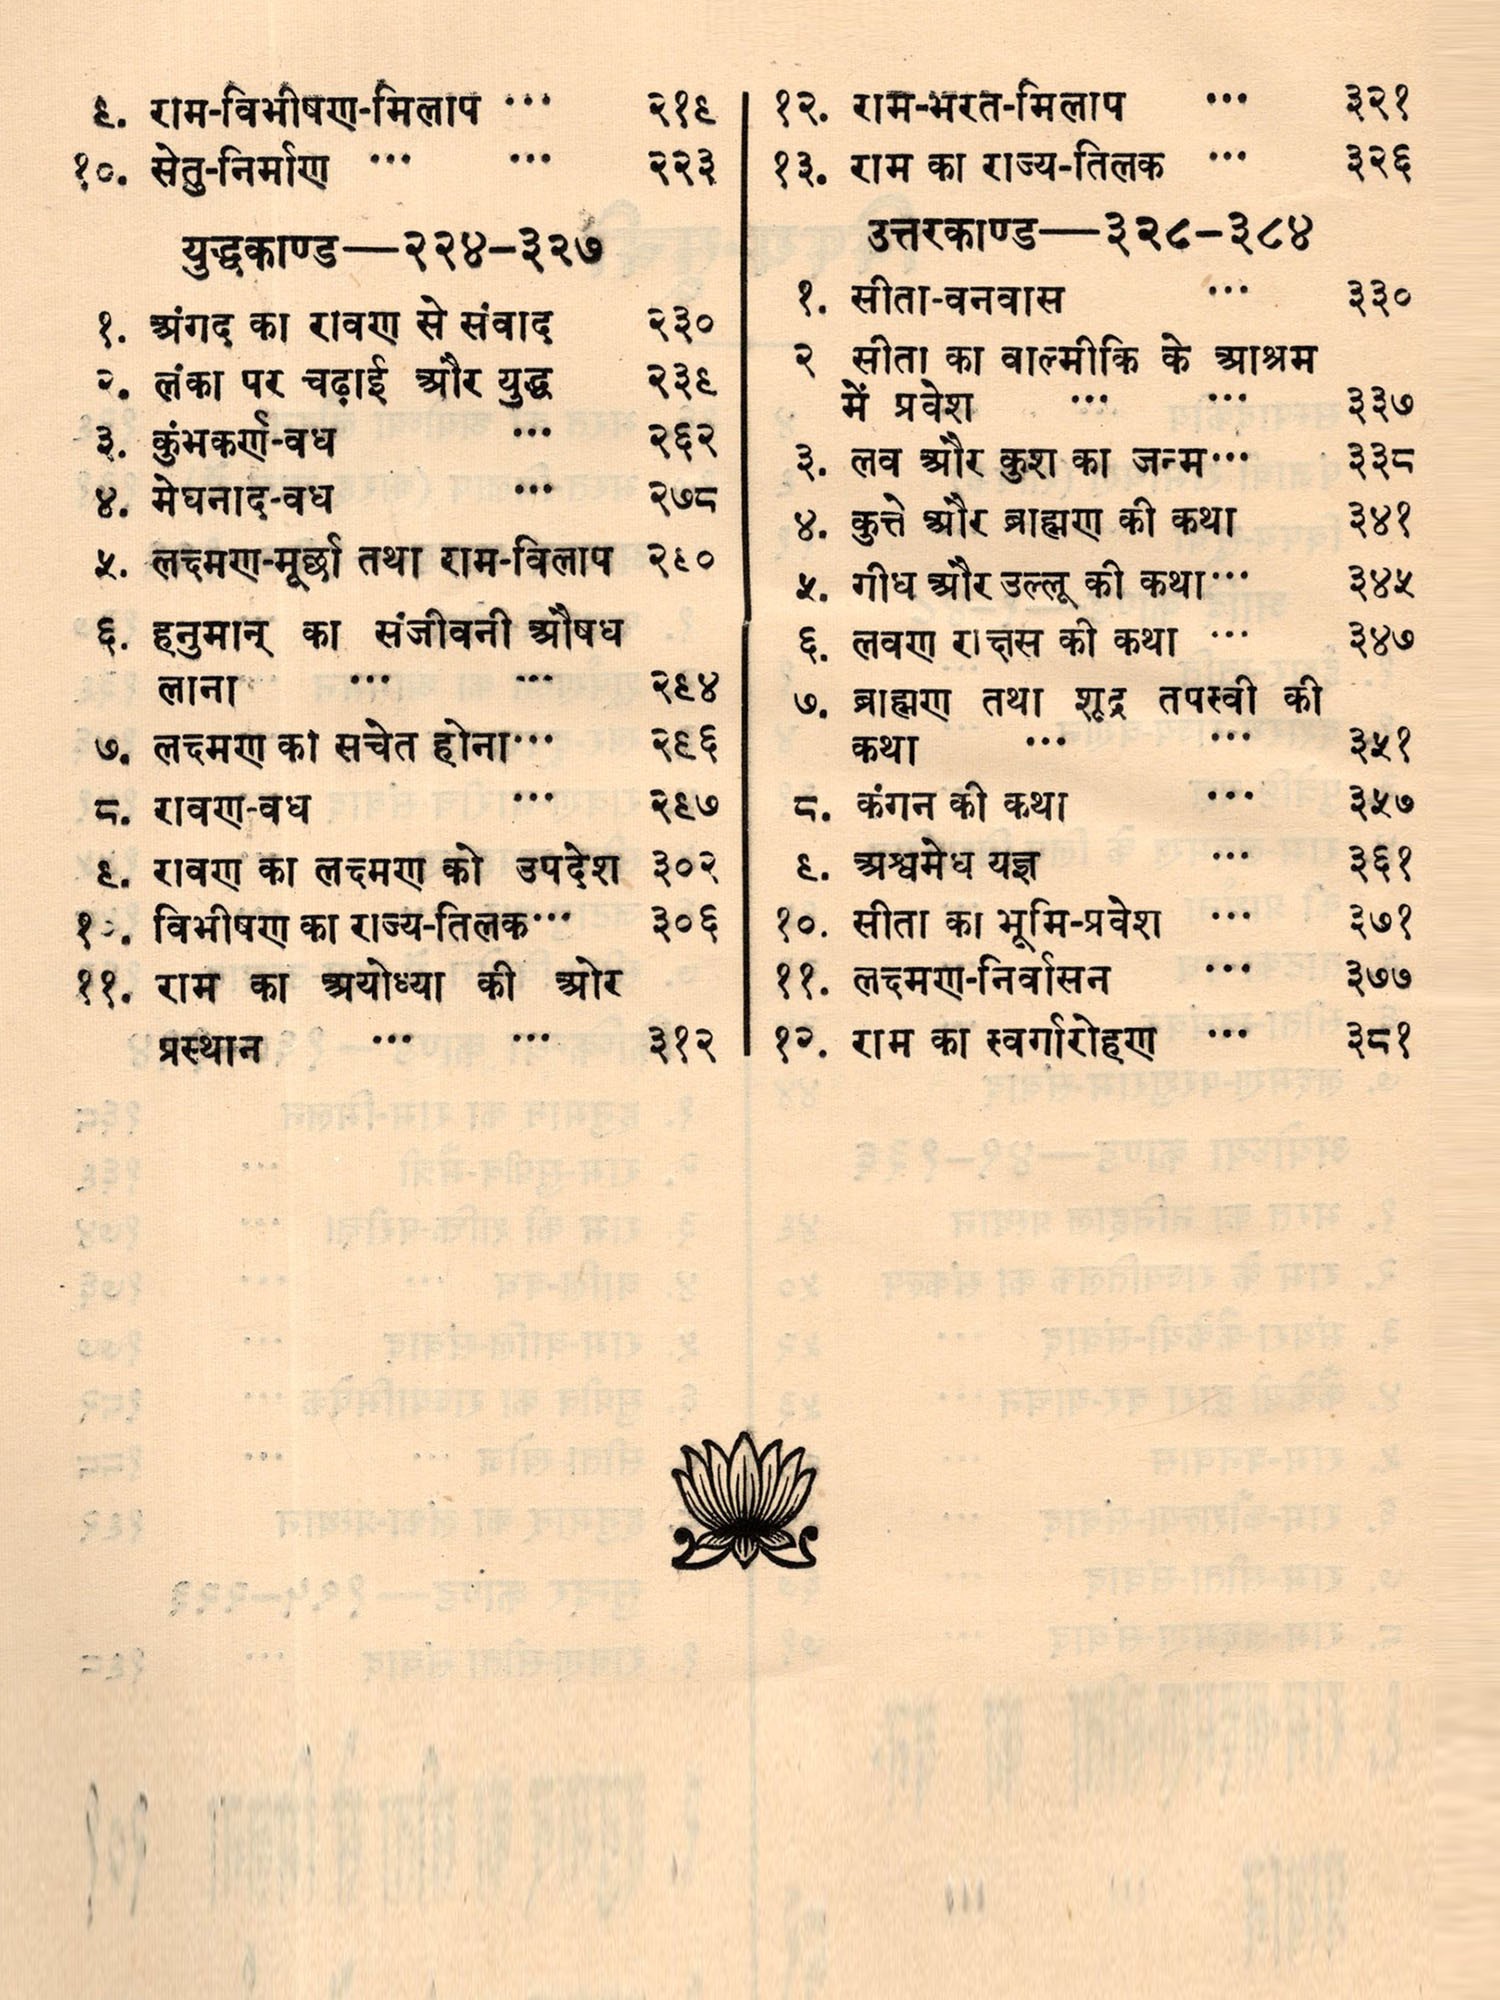 ९. राम-विभीषण-मिलाप ... २१९
१०. सेतु-निर्माण ... ... २२३
युद्धकाण्ड—२२४-३२७
१. अंगद का रावण से संवाद २३०
२. लंका पर चढ़ाई और युद्ध २३९
३. कुंभकर्ण-वध ... २६२
४. मेघनाद-वध ... २७८
५. लक्ष्मण-मूर्छा तथा राम-विलाप २९०
६. हनुमान् का संजीवनी औषध
लाना ... ... २९४
७. लक्ष्मण का सचेत होना... २९६
८. रावण-वध ... २९७
९. रावण का लक्ष्मण को उपदेश ३०२
१०. विभीषण का राज्य-तिलक... ३०६
११. राम का अयोध्या की ओर
प्रस्थान ... ... ३१२
१२. राम-भरत-मिलाप ... ३२१
१३. राम का राज्य-तिलक ... ३२६
उत्तरकाण्ड—३२८-३८४
१. सीता-वनवास ... ३३०
२ सीता का वाल्मीकि के आश्रम
में प्रवेश ... ... ३३७
३. लव और कुश का जन्म... ३३८
४. कुत्ते और ब्राह्मण की कथा ३४१
५. गीध और उल्लू की कथा... ३४५
६. लवण राक्षस की कथा ... ३४७
७. ब्राह्मण तथा शूद्र तपस्वी की
कथा ... ... ३५१
८. कंगन की कथा ... ३५७
९. अश्वमेध यज्ञ ... ३६१
१०. सीता का भूमि-प्रवेश ... ३७१
११. लक्ष्मण-निर्वासन ... ३७७
१२. राम का स्वर्गारोहण ... ३८१